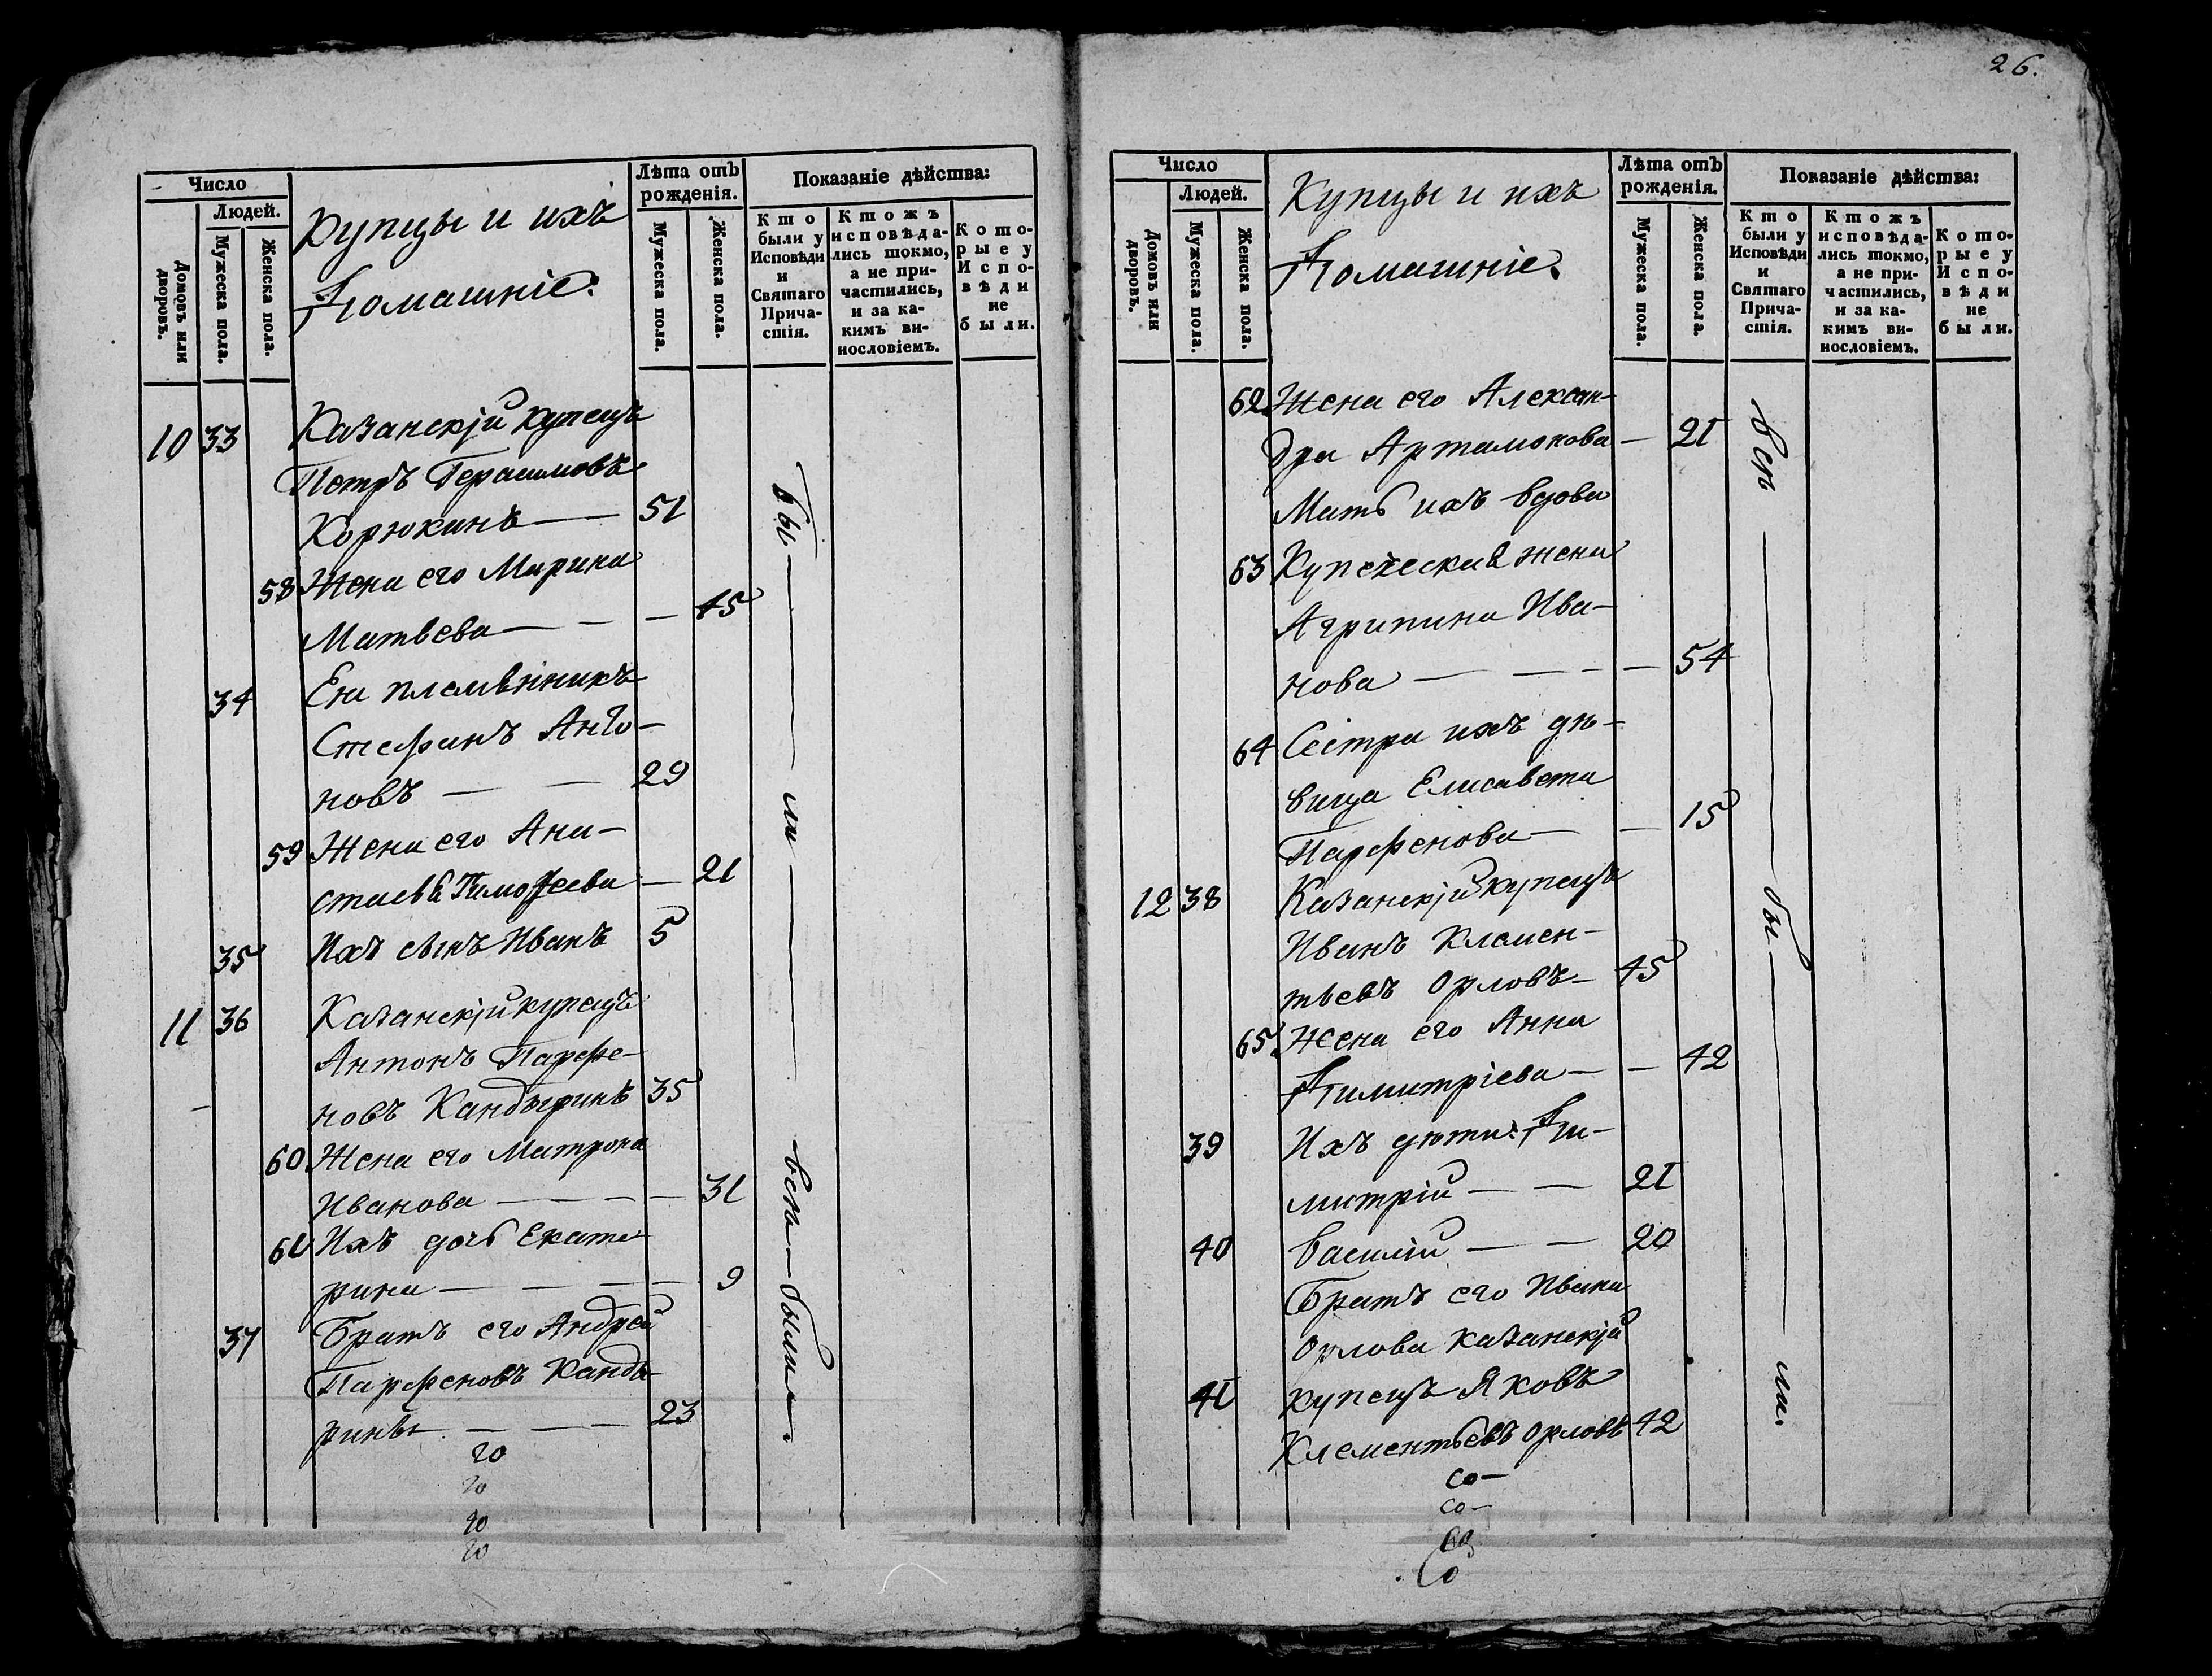 Число
Людей.
Домовъ или дворовъ.
Мужеска пола.
Женска пола.
Купцы и ихъ
Домашніе:
Лѣта отъ
рожденія.
Мужеска пола.
Женска пола.
Показаніе дѣйства:
Кто
были у
Исповѣди
и
Святаго
Прича-
стія.
Ктожъ
исповѣда-
лись токмо,
а не при-
частились,
и за ка-
кимъ ви-
нословіемъ.
Кото-
рые у
Испо-
вѣди
не
были.
10 33 Казанскій купецъ
Петръ Герасимовъ
Корюкинъ — 51
58 Жена его Марина
Матвѣева — — — 45
34 Ея племянникъ
Стефанъ Анто-
новъ — — 29
59 Жена его Ана-
стасья Тимофеева — 21
35 Ихъ сынъ Иванъ 5
11 36 Казанскій купецъ
Антонъ Парфе-
новъ Кандыринъ 35
60 Жена его Матрона
Иванова — — — — 31
61 Ихъ дочь Екате-
рина — — — — 9
37 Братъ его Андрей
Парфеновъ Канды-
ринъ — — — 23
бы — ли — всѣ — были.
26.
Число
Людей.
Домовъ или дворовъ.
Мужеска пола.
Женска пола.
Купцы и ихъ
Домашніе.
Лѣта отъ
рожденія.
Мужеска пола.
Женска пола.
Показаніе дѣйства:
Кто
были у
Исповѣди
и
Святаго
Прича-
стія.
Ктожъ
исповѣда-
лись токмо,
а не при-
частились,
и за ка-
кимъ ви-
нословіемъ.
Кото-
рые у
Испо-
вѣди
не
были.
62 Жена его Алексан-
дра Артамонова — 21
Мать ихъ вдова
63 Купеческая жена
Агрипина Ива-
нова — — — 54
64 Сестра ихъ дѣ-
вица Елисавета
Парфенова — — 15
12 38 Казанскій купецъ
Иванъ Клемен-
тьевъ Орловъ — 45
65 Жена его Анна
Димитріева — — 42
39 Ихъ дѣти: Ди-
митрій — — 21
40 Василій — — 20
Братъ его Ивана
Орлова казанскій
41 купецъ Яковъ
Клементьевъ Орловъ 42
всѣ — бы — ли.